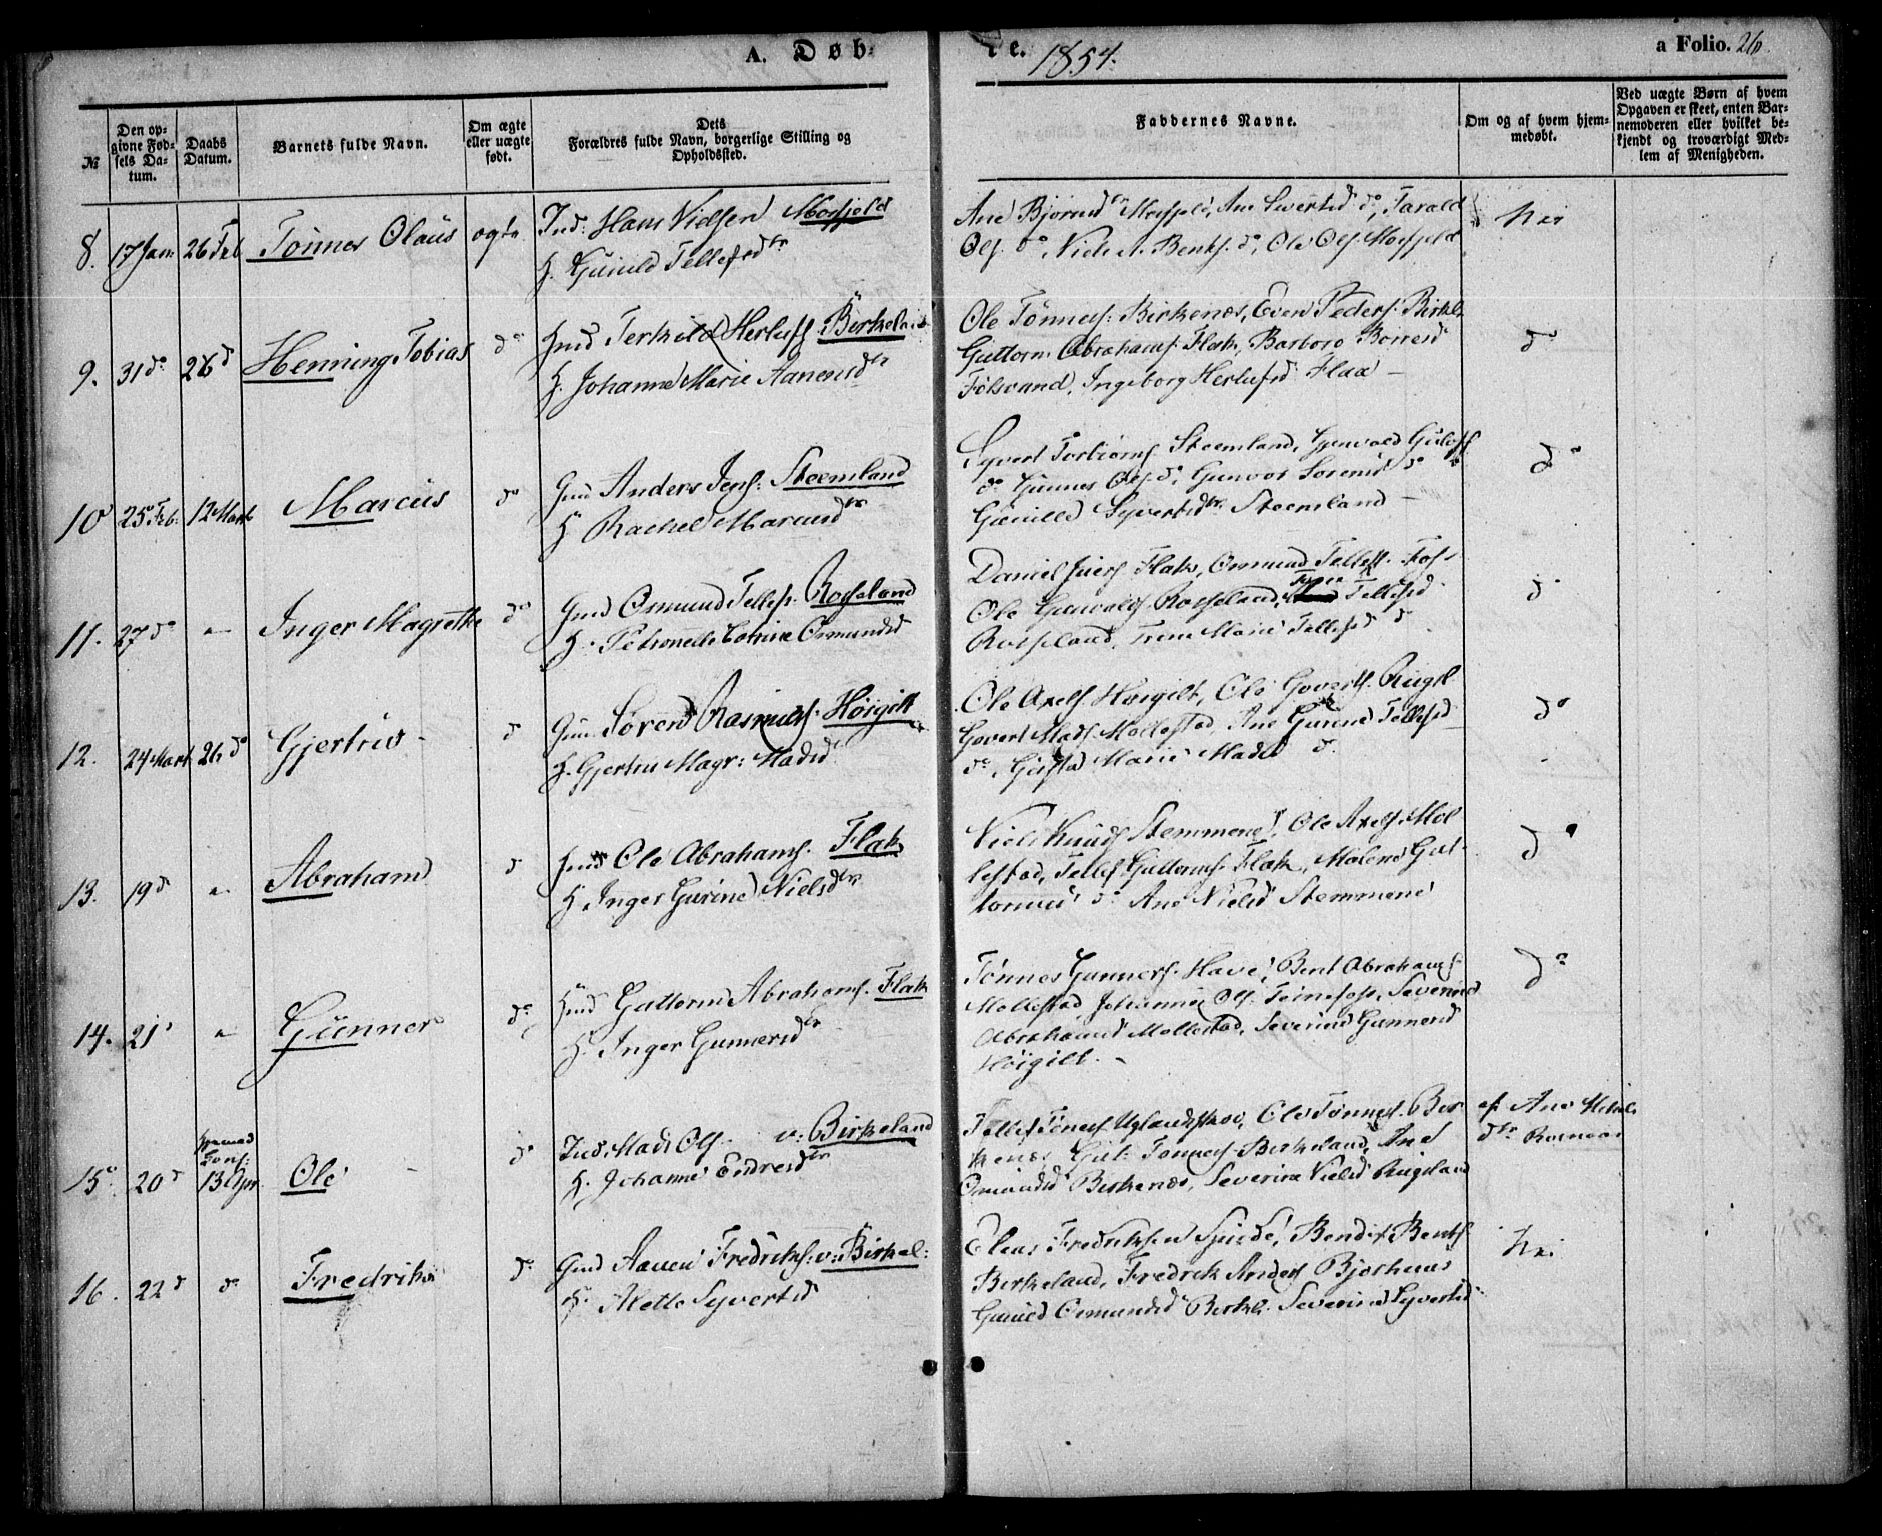 A. Døb-
te. 1854.
a Folio. 26.
№
Den op-
givne Fød-
sels Da-
tum.
Daabs
Datum.
Barnets fulde Navn.
Om ægte
eller uægte
født.
Dets
Forældres fulde Navn, borgerlige Stilling og
Opholdssted.
Faddernes Navne.
Om og af hvem hjem-
medøbt.
Ved uægte Børn af hvem
Opgaven er skeet, enten Bar-
nemoderen eller hvilket be-
kjendt og troværdigt Med-
lem af Menigheden.
8. 17 Jan 26 Feb Tønnes Olaus ægte Ind: Hans Nielsen Mosfjeld
H. Gunild Tellefsdtr
Ane Bjørnsdtr Mosfjeld, Ane Sivertsd do, Tarald
Ols. do, Niels A. Bents. do, Ole Ols. Mosfjeld
Nei
9. 31 do 26 d Henning Tobias do Gmd Terkild Herlufs. Birkeland
H. Johanne Marie Aanensdtr
Ole Tønnes. Birkenæs, Even Peders. Birkl.
Guttorm Abrahams. Flak, Barbro Børresd
Følsvand, Ingeborg Herlufsd Flaa
do
10 25 Feb. 12 Marts Marcus do Gmd Anders Jens. Steemland
H. Rachel Marcusdtr
Syvert Torbiørns. Steemland, Gunvald
do Gunnes Ols. do, Gunvor Sorensd do
Gunild Syvertsdtr Steemland
do
11. 27 do " Inger Magrethe do Gmd Osmund Tellefs. Rosseland
H. Petronelle Osmundsd
Daniel Flak, Osmund Tellefs. Fos-
Ole Gunvalds. Rosseland, Tellefsd
Rosseland, Marie Tellefsd d
d
12. 24 Mart 26 do Gjertrud d Gmd Søren Rasmus. Høigilt
H. Gjertru Magr: Madsd
Ole Axels. Høigilt, Ole Goverts.
Govert Mads. Mollestad, Ane Gurine Tellefsd
do, Marie Madsd d.
do
13. 19 d " Abraham d Gmd Ole Abrahams. Flak
H. Inger Gurine Nielsdtr
Niels Knuds. Stemmene, Ole Axels. Mol
lestad, Tellef Guttorms. Flak, Malene Gut-
tormsd do Ane Nielsd Stemmene
do
14. 21 " Gunner do Gmd Guttorm Abrahams. Flak
H. Inger Gunnersdtr
Tønnes Gunners. Have, Bent Abrahams.
Mollestad Johannes Ols. Severine
Abrahamsd Mollestad, Severine Gunnersd
Høigilt.
do
15 20 d 13 Apr. Ole d Ind. Mads Ols. v. Birkeland
H. Johanne Endresdtr
Tellef Tønnes. Uglandskov, Ole Tønnes. Bir
kenæs, Gut. Tønnes. Birkeland, Ane
Osmundsd Birkenæs, Severine Nielsd Rugsland
af Ane
dtr
16. 22 d do Fredrik do Gmd Aanen Fredriks. v. Birkel.
H. Alette Syvertsd
Elias Fredriksen Bendix Bents.
Birkeland, Fredrik Anders.
Gunild Osmundsd Birkl. Severine Syvertsd
Nei